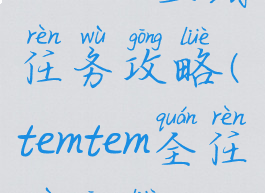 rèn wù gōng lüè
任务攻略(
quán rèn
temtem全任